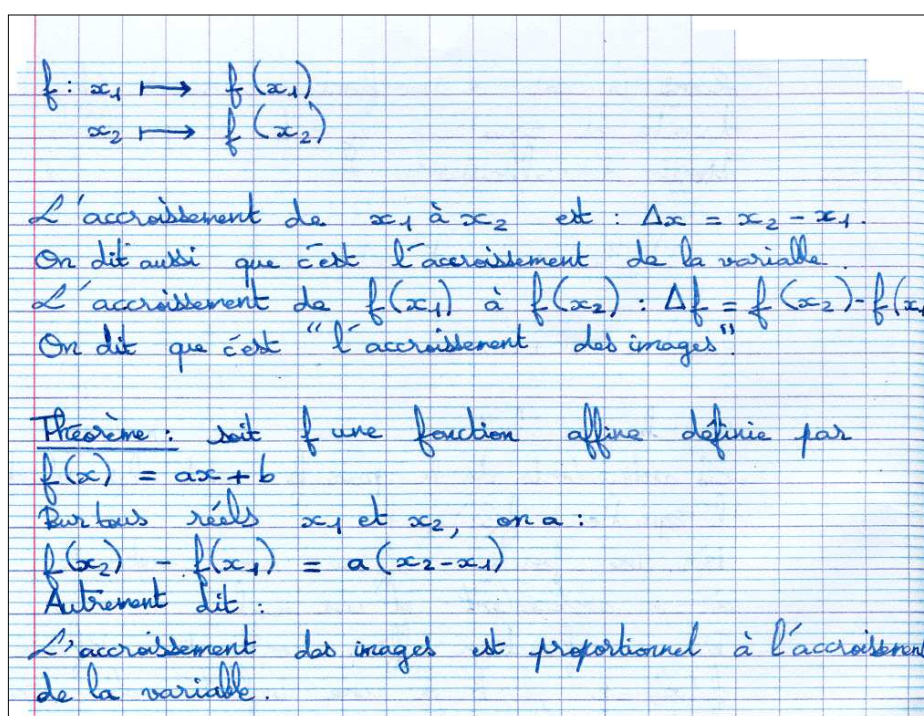 f : x₁ ⟼ f(x₁)
x₂ ⟼ f(x₂)
L'accroissement de x₁ à x₂ est : Δx = x₂ - x₁.
On dit aussi que c'est l'accroissement de la variable.
L'accroissement de f(x₁) à f(x₂) : Δf = f(x₂) - f(x₁
On dit que c'est "l'accroissement des images".
Théorème : soit f une fonction affine définie par
f(x) = ax + b
Pour tous réels x₁ et x₂, on a :
f(x₂) - f(x₁) = a(x₂ - x₁)
Autrement dit :
L'accroissement des images est proportionnel à l'accroissement
de la variable.